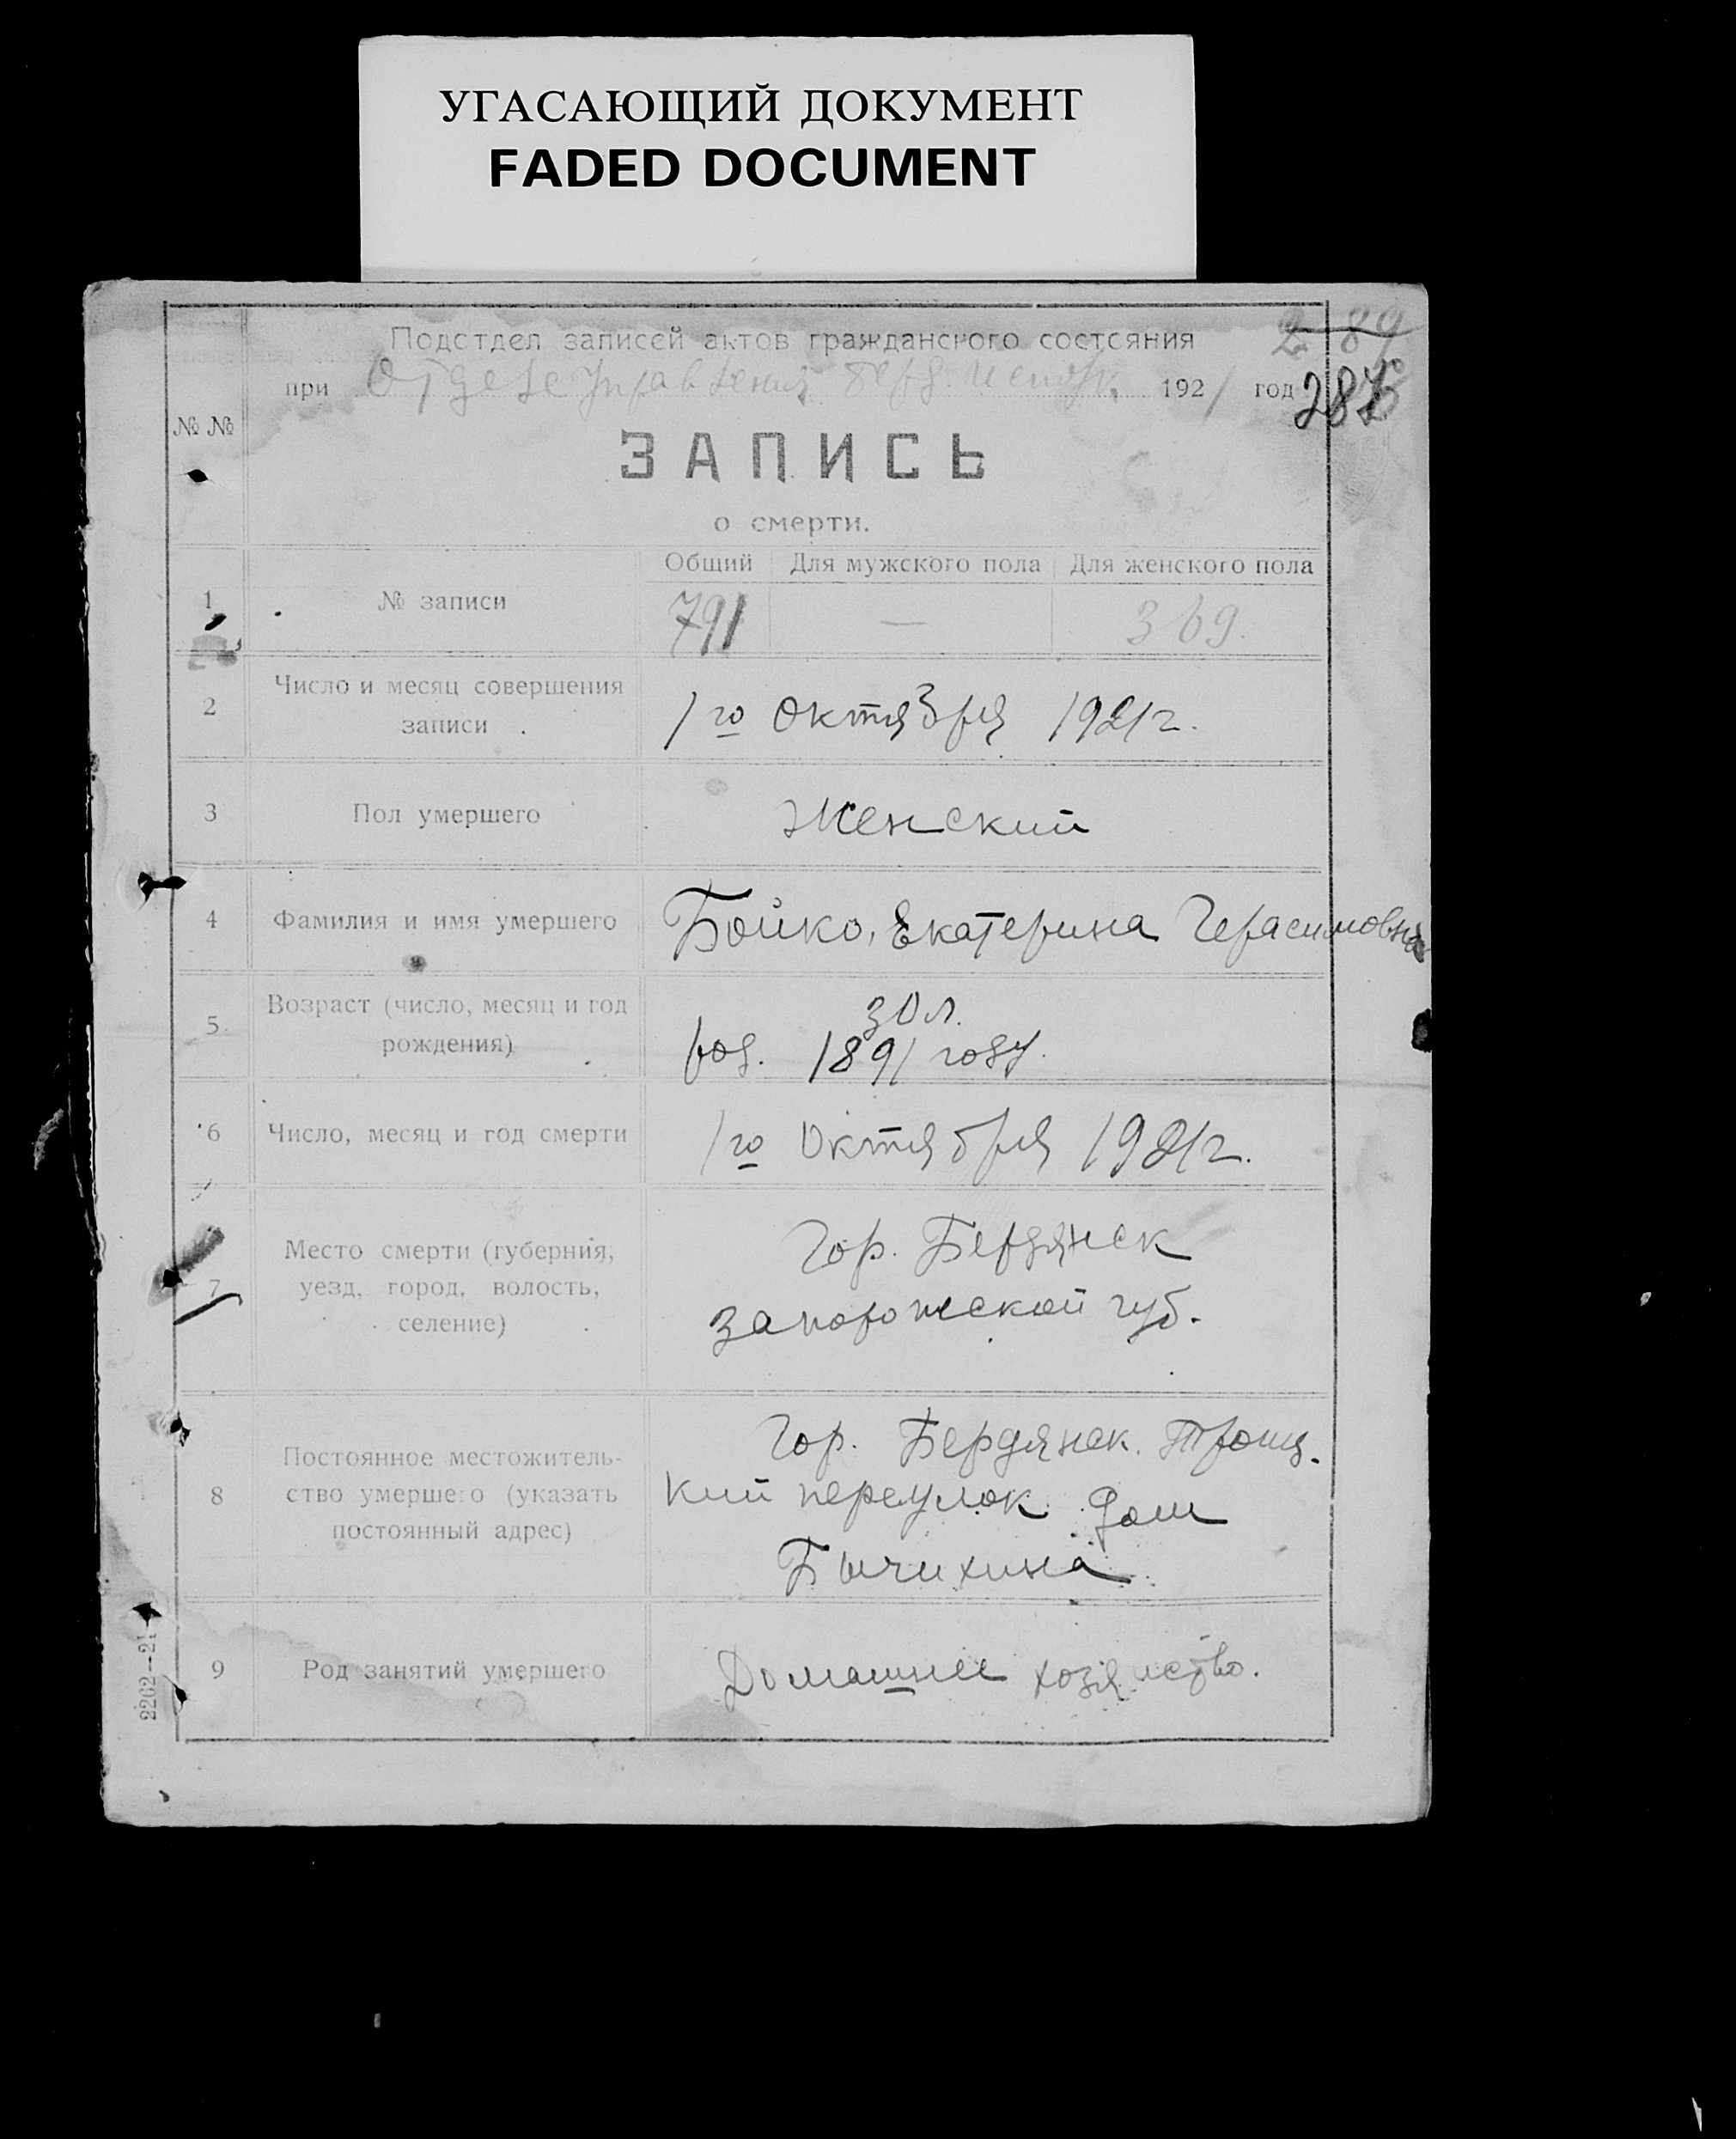 УГАСАЮЩИЙ ДОКУМЕНТ
FADED DOCUMENT
Подстдел записей актов гражданского состояния
2 89
при Отделе Управления Берд. Исполк. 1921 год
287
№ №
ЗАПИСЬ
о смерти.
Общий Для мужского пола Для женского пола
1 № записи 791 — 369.
2 Число и месяц совершения записи 1го Октября 1921 г.
3 Пол умершего Женский
4 Фамилия и имя умершего Бойко, Екатерина Герасимовна
5 Возраст (число, месяц и год рождения) 30 л.
род. 1891 году.
6 Число, месяц и год смерти 1го Октября 1921 г.
7 Место смерти (губерния, уезд, город, волость, селение) Гор. Бердянск
Запорожской губ.
8 Постоянное местожитель-
ство умершего (указать
постоянный адрес)
Гор. Бердянск. Троиц.
кий переулок. дом
Бычихина
9 Род занятий умершего Домашнее хозяйство.
2262—21